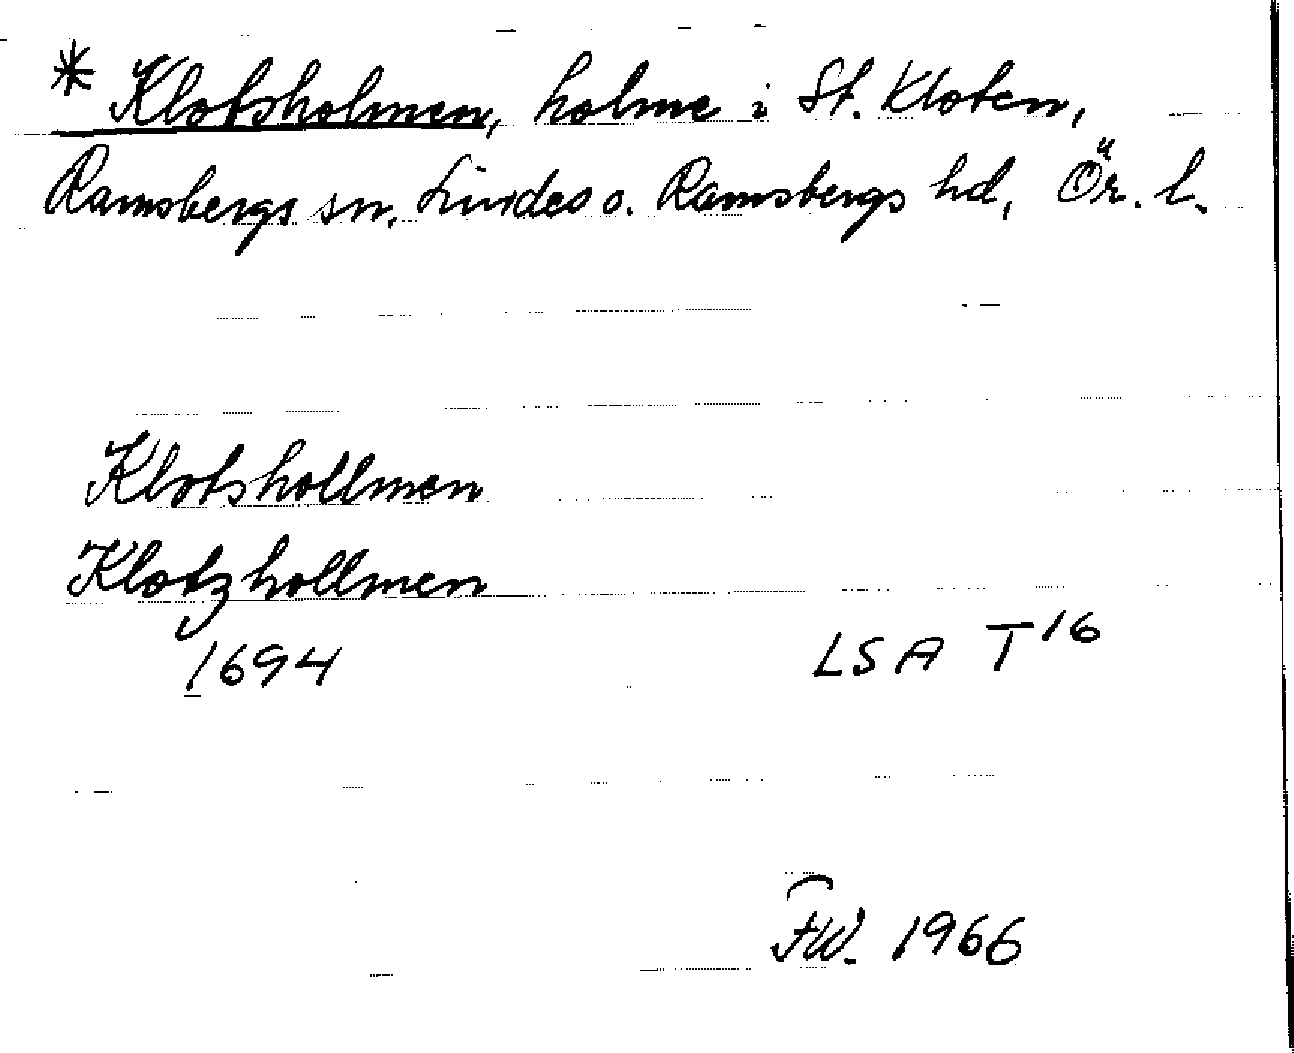 * Klotsholmen, holme i St. Kloten,
Ramsbergs sn, Lindes o. Ramsbergs hd, Ör. l.
Klotshollmen
Klotzhollmen
1694 LSA T16
FW. 1966